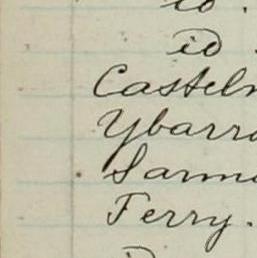 id.
id.
Casteln
Ybarra
Sarm
Ferry.